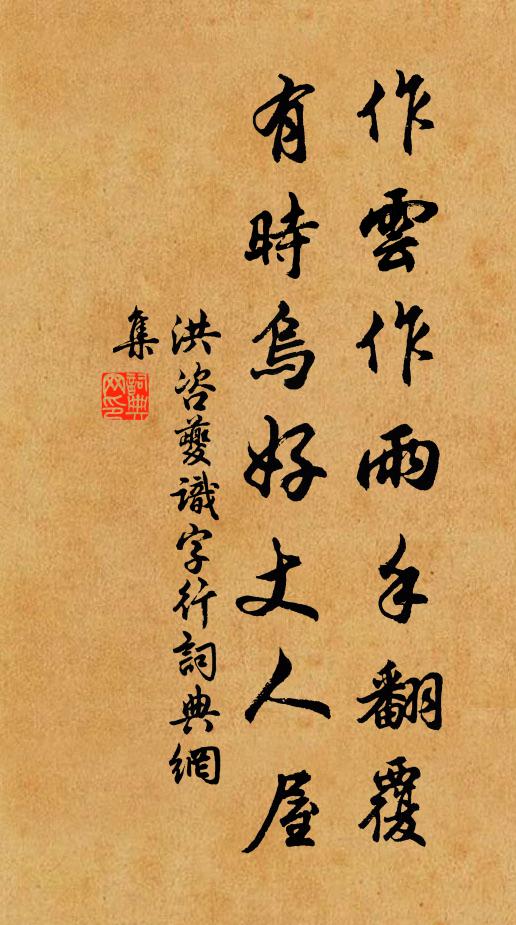 作雲作雨手翻覆
有時烏好丈人屋
洪咨夔識字行詞典網
集
詞典
网印